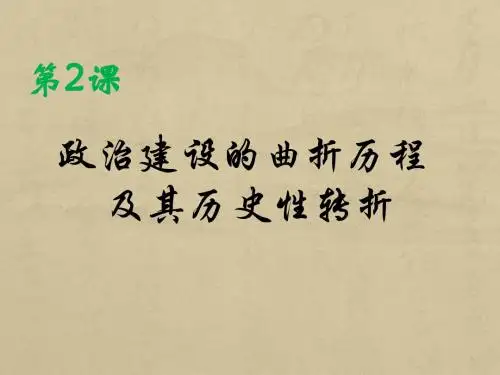 第2课
政治建设的曲折历程
及其历史性转折